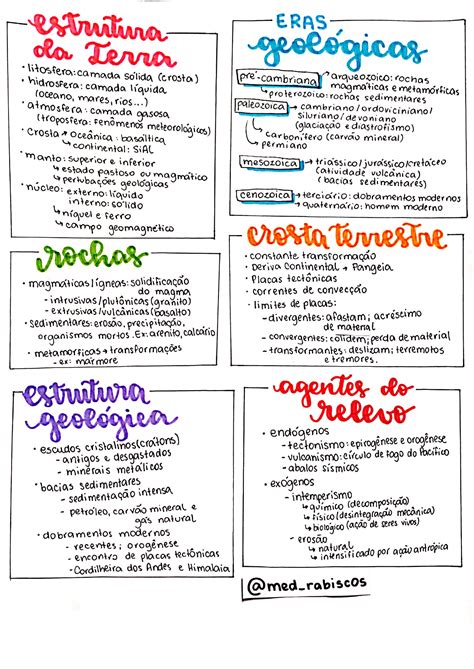 estrutura
da Terra
• litosfera: camada sólida (crosta)
• hidrosfera: camada líquida
(oceano, mares, rios...)
• atmosfera: camada gasosa
(troposfera: fenômenos meteorológicos)
• Crosta → Oceânica: basáltica
↳ continental: SiAL
• manto: superior e inferior
↳ estado pastoso ou magmático
↳ pertubações geológicas
• núcleo: externo: líquido
interno: sólido
↳ níquel e ferro
↳ campo geomagnético
ERAS
geológicas
pré-cambriana → arqueozoico: rochas
magmáticas e metamórficas
↳ proterozoico: rochas sedimentares
paleozoica → cambriano/ordoviciniano/
siluriano/devoniano
(glaciação e diastrofismo)
↳ carbonífero (carvão mineral)
↳ permiano
mesozoica → triássico/jurássico/cretáceo
(atividade vulcânica)
(bacias sedimentares)
cenozoica → terciário: dobramentos modernos
↳ quaternário: homem moderno
rochas
• magmáticas/ígneas: solidificação
do magma
- intrusivas/plutônicas (granito)
- extrusivas/vulcânicas (basalto)
• sedimentares: erosão, precipitação,
organismos mortos. Ex: arenito, calcário
• metamorficas → transformações
- ex: mármore
crosta terrestre
• constante transformação
• Deriva Continental → Pangeia
• Placas tectônicas
• correntes de convecção
• limites de placas:
- divergentes: afastam; acréscimo
de material
- convergentes: colidem; perda de material
- transformantes: deslizam; terremotos
e tremores.
estrutura
geológica
• escudos cristalinos (cratons)
- antigos e desgastados
- minerais metálicos
• bacias sedimentares
- sedimentação intensa
- petróleo, carvão mineral e
gás natural
• dobramentos modernos
- recentes; orogênese
- encontro de placas tectônicas
- Cordilheira dos Andes e Himalaia
agentes do
relevo
• endógenos
- tectonismo: epirogênese e orogênese
- vulcanismo: círculo de fogo do Pacífico
- abalos sísmicos
• exógenos
- intemperismo
↳ químico (decomposição)
↳ físico (desintegração mecânica)
↳ biológico (ação de seres vivos)
- erosão
↳ natural
↳ intensificado por ação antrópica
@med_rabiscos